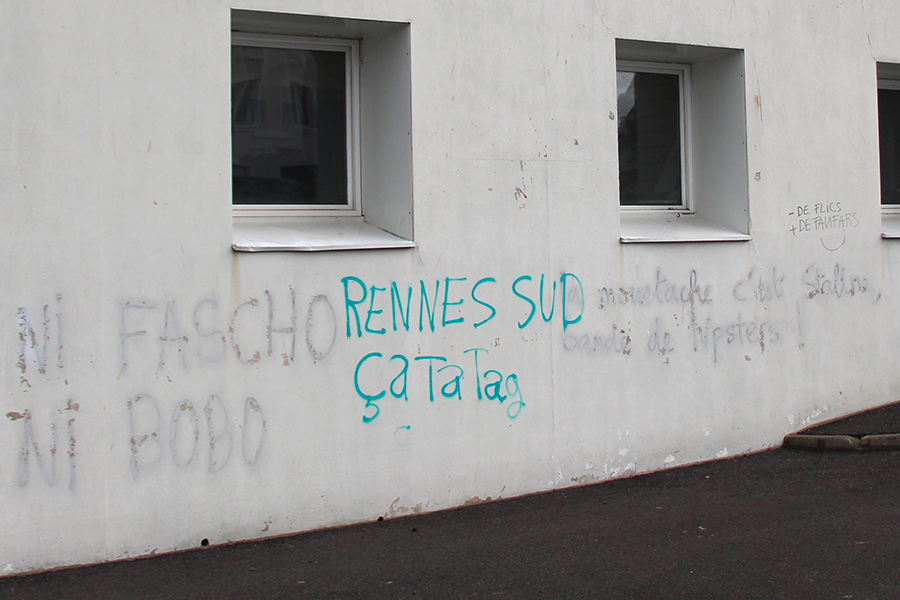 NI FASCHO
NI BOBO
RENNES SUD
ça Ta Tag
la moustache c'est Staline,
bande de hipsters !
- DE FLICS
+ DE FANFARS